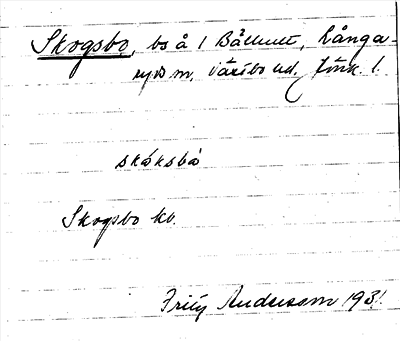 Skogsbo, bs å 1 Bållhult, Långa-
ryds m, Västbo hd, Jönk. l.
skóksbó
Skogsbo kb.
Fritz Andersson 1931.